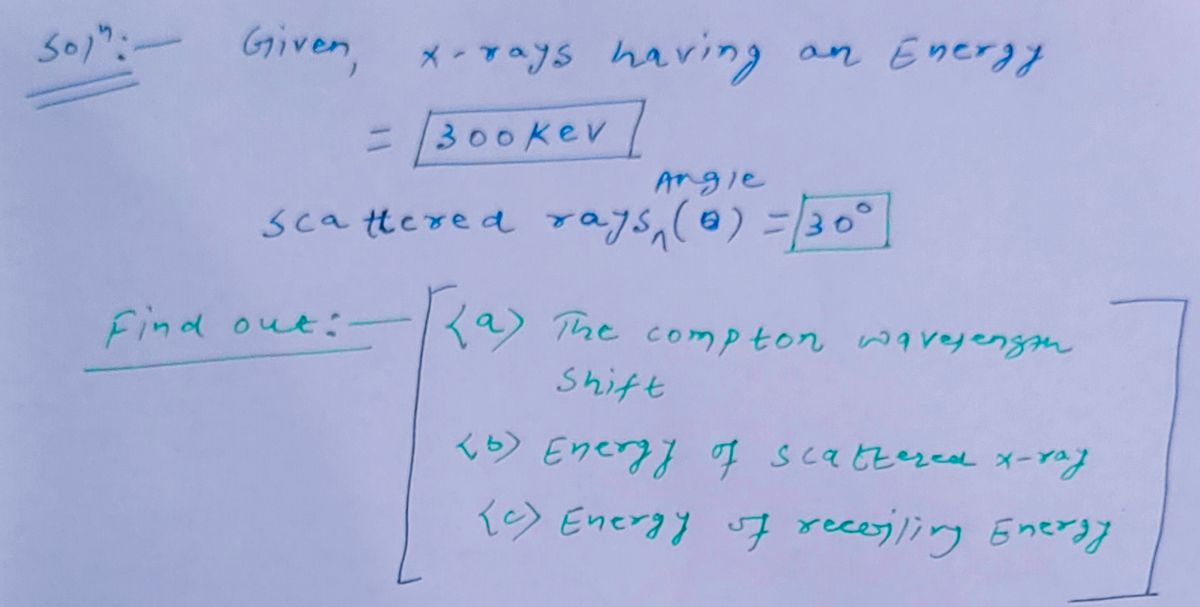 Solⁿ:— Given, x-rays having an Energy
= 300 Kev
Angle
scattered rays^(θ) = 30°
Find out:— <a> The compton wavelength
Shift
<b> Energy of scattered x-ray
<c> Energy of recoiling Energy